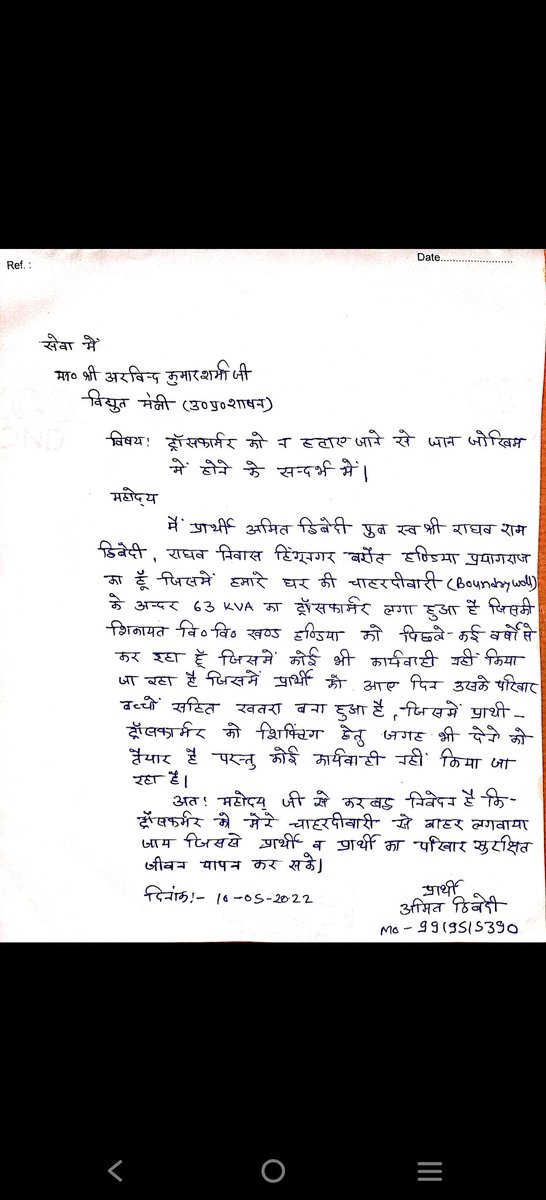 Ref. :
Date........................
सेवा में
मा० श्री अरविन्द कुमार शर्मा जी
विद्युत मंत्री (उ०प्र०शाषन)
विषय! ट्राँसफार्मर को न हटाए जाने से जान जोखिम
में होने के सन्दर्भ में।
महोदय
में प्रार्थी अमित द्विबेदी पुत्र स्व श्री राघव राम
द्विबेदी, राघव निवास हिंगूनगर बरौत हण्डिया प्रयागराज
का हूँ जिसमें हमारे घर की चाहरदीवारी (Boundry wall)
के अन्दर 63 KVA का ट्राँसफार्मर लगा हुआ है जिसकी
शिकायत वि० वि० खण्ड हण्डिया को पिछले कई वर्षो से
कर रहा हूँ जिसमें कोई भी कार्यवाही नहीं किया
जा रहा है जिसमें प्रार्थी को आए दिन उसके परिवार
बच्चों सहित खतरा बना हुआ है, जिसमें प्रार्थी -
ट्राँसफार्मर को शिफ्टिंग हेतु जगह भी देने को
तैयार है परन्तु कोई कार्यवाही नहीं किया जा
रहा है।
अत! महोदय जी से करबद्ध निवेदन है कि-
ट्राँसफार्मर को मेरे चाहरदीवारी से बाहर लगवाया
जाय जिससे प्रार्थी व प्रार्थी का परिवार सुरक्षित
जीवन यापन कर सके।
दिनांक!- 10-05-2022
प्रार्थी
अमित द्विबेदी
Mo - 9919515390